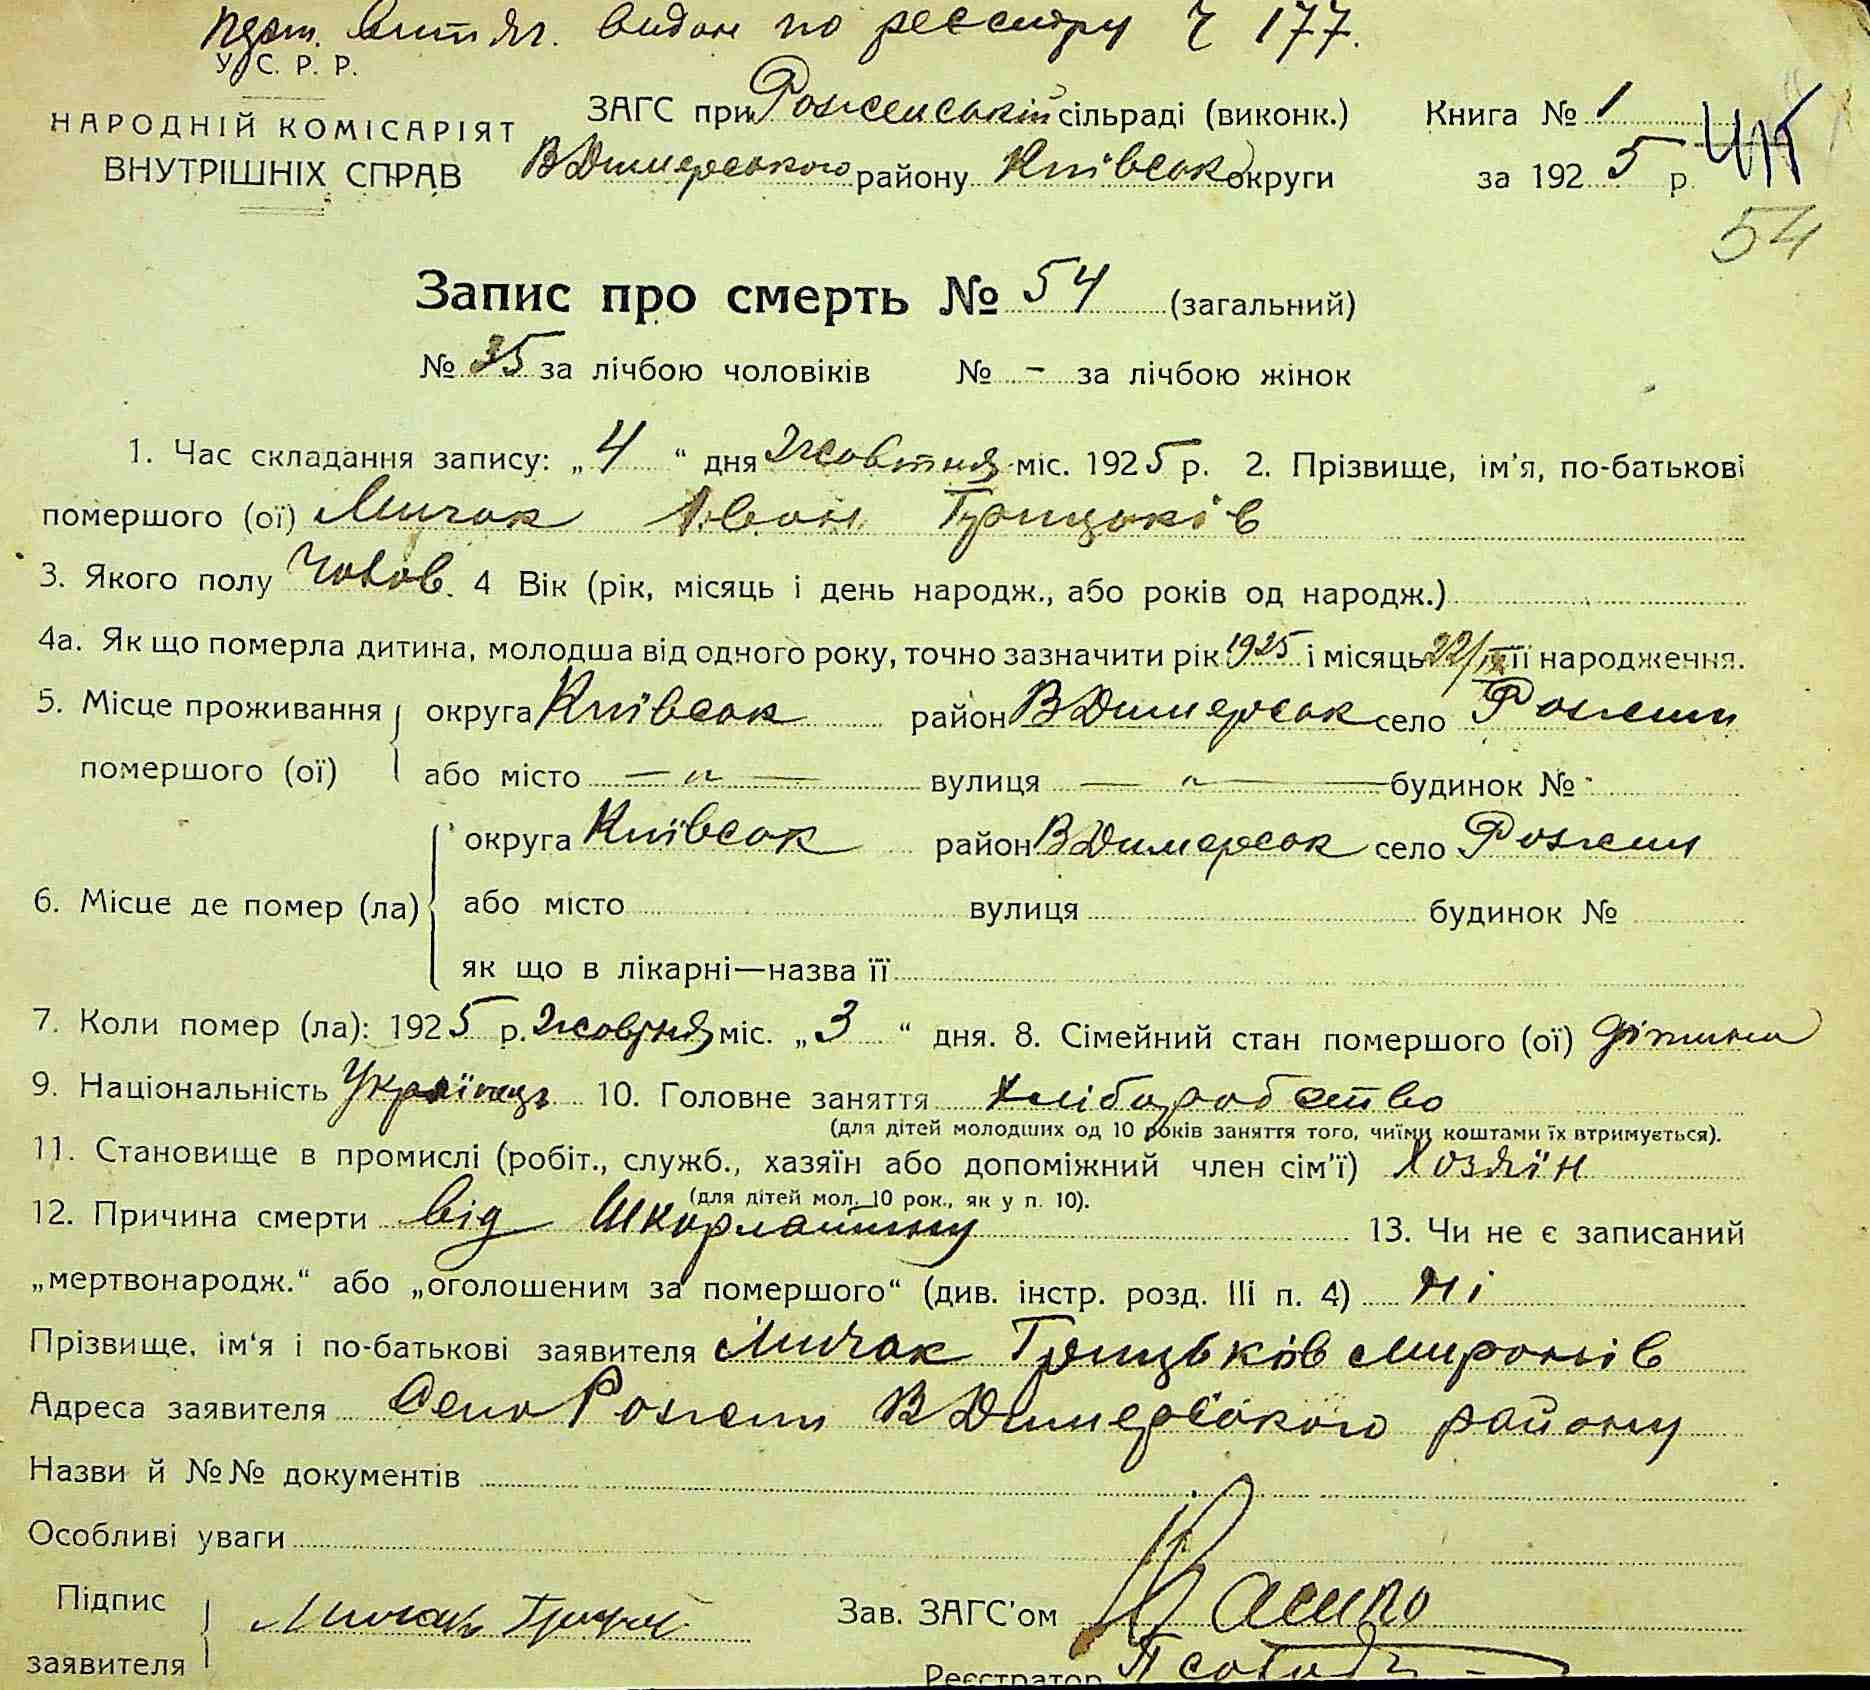 Підт. витяг. видан по реєстру Ч 177.
У. С. Р. Р.
НАРОДНІЙ КОМІСАРІЯТ
ВНУТРІШНІХ СПРАВ
ЗАГС при Роженській сільраді (виконк.)
ВДимерського району Київськ округи
Книга № 1
за 1925 р.
54
Запис про смерть № 54 (загальний)
№ 35 за лічбою чоловіків № - за лічбою жінок
1. Час складання запису: „4“ дня Жовтня міс. 1925 р. 2. Прізвище, ім'я, по-батькові
помершого (ої) Мичак Іван Грицьків
3. Якого полу Чолов. 4 Вік (рік, місяць і день народж., або років од народж.)
4а. Як що померла дитина, молодша від одного року, точно зазначити рік 1925 і місяць 22/ІХ її народження.
5. Місце проживання помершого (ої) округа Київськ район ВДимерськ село Рожени
або місто — „ — вулиця — „ — будинок №
6. Місце де помер (ла) округа Київськ район ВДимерськ село Рожени
або місто вулиця будинок №
як що в лікарні—назва її
7. Коли помер (ла): 1925 р. Жовтня міс. „3“ дня. 8. Сімейний стан помершого (ої) дитина
9. Національність Українець 10. Головне заняття Хліборобство
(для дітей молодших од 10 років заняття того, чиїми коштами їх втримується).
11. Становище в промислі (робіт., служб., хазяїн або допоміжний член сім'ї) Хозяїн
(для дітей мол. 10 рок., як у п. 10).
12. Причина смерти від Шкорлатину 13. Чи не є записаний
„мертвонародж.“ або „оголошеним за помершого“ (див. інстр. розд. III п. 4) ні
Прізвище, ім'я і по-батькові заявителя Мичак Грицьків Миронів
Адреса заявителя Село Рожени ВДимерського району
Назви й №№ документів
Особливі уваги
Підпис заявителя Мичак
Зав. ЗАГС'ом
Реєстратор